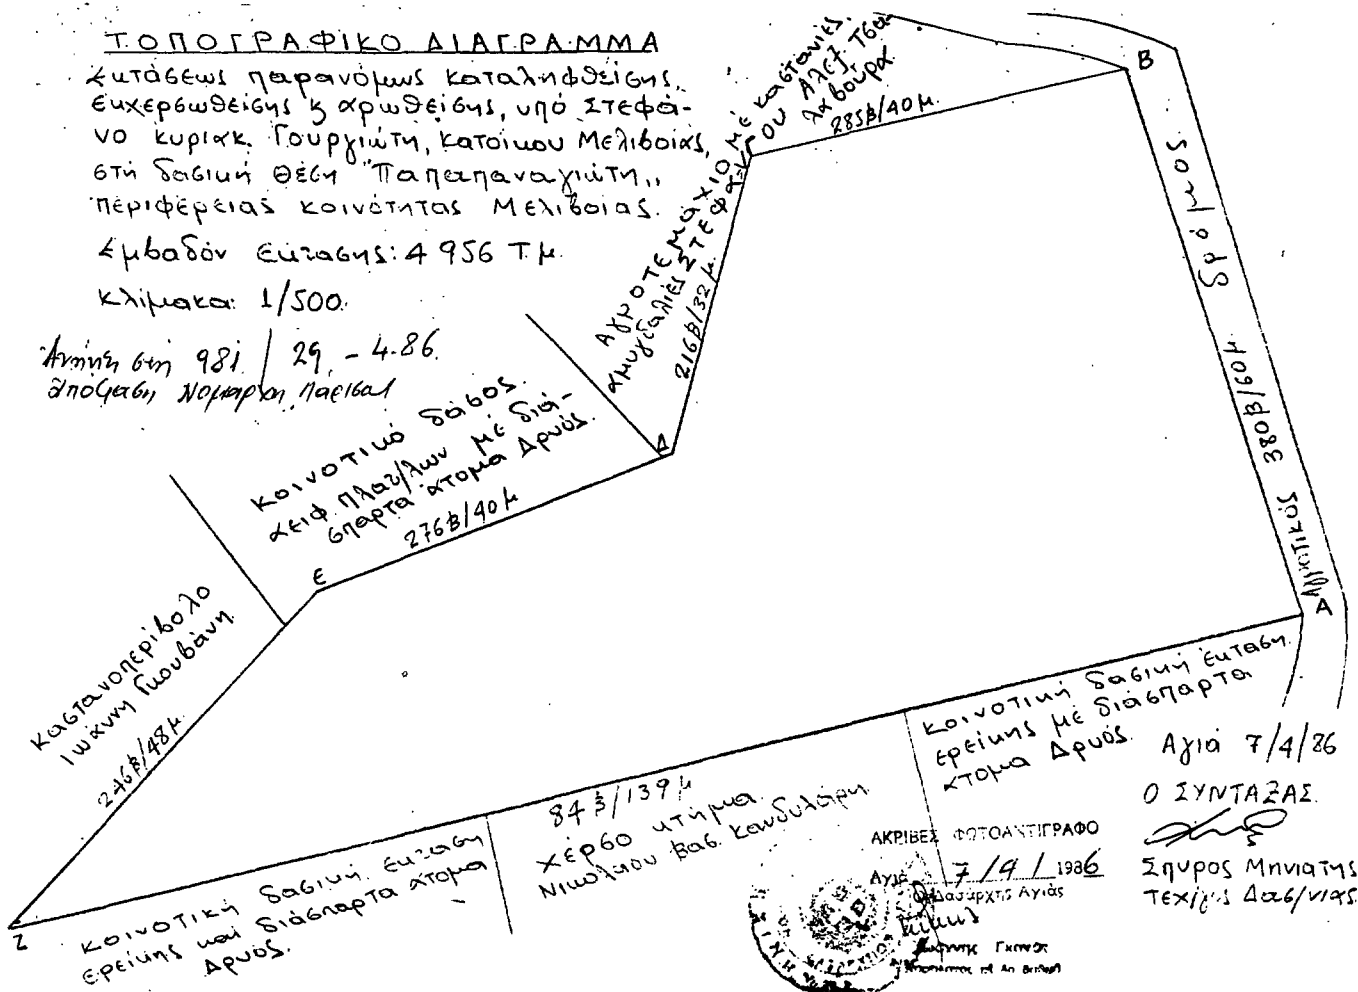 ΤΟΠΟΓΡΑΦΙΚΟ ΔΙΑΓΡΑΜΜΑ
Εκτάσεως παρανόμως καταληφθείσης,
εκχερσωθείσης & αρωθείσης, υπό Στεφά-
νο Κυριακ. Γουργιώτη, κατοίκου Μελιβοίας,
στη δασική θέση "Παπαπαναγιώτη,,
περιφέρειας κοινότητας Μελιβοίας.
Εμβαδόν έκτασης: 4 956 Τ.μ.
Κλίμακα: 1/500.
Ανήκει στη 981 / 29 - 4.86.
απόφαση Νομάρχη Λάρισας
Αγροτεμάχιο με καστανιές,
αμυγδαλιές Στεφάνου Αλεξ. Τσα-
λαβούρα.
285β/40 μ.
216β/32 μ.
Β
Γ
δρόμος
380β/60μ
Α
Κοινοτικό δάσος
αειφ. πλατ/λων με διά-
σπαρτα άτομα Δρυός.
276β/40 μ
Δ
Ε
Καστανοπερίβολο
Ιωάννη Γκουβάνη.
246β/48 μ.
Ζ
Κοινοτική δασική έκταση
ερείκης και διάσπαρτα άτομα
Δρυός.
84β/139 μ
χέρσο κτήμα
Νικολάου Βασ. Κανδυλάρη
Κοινοτική δασική έκταση
ερείκης με διάσπαρτα
άτομα Δρυός.
Αγιά 7/4/86
Ο ΣΥΝΤΑΞΑΣ
Σπύρος Μηνιάτης
Τεχ/γος Δασ/νίας
ΑΚΡΙΒΕΣ ΦΩΤΟΑΝΤΙΓΡΑΦΟ
Αγιά 7/4/1986
Ο Δασάρχης Αγιάς